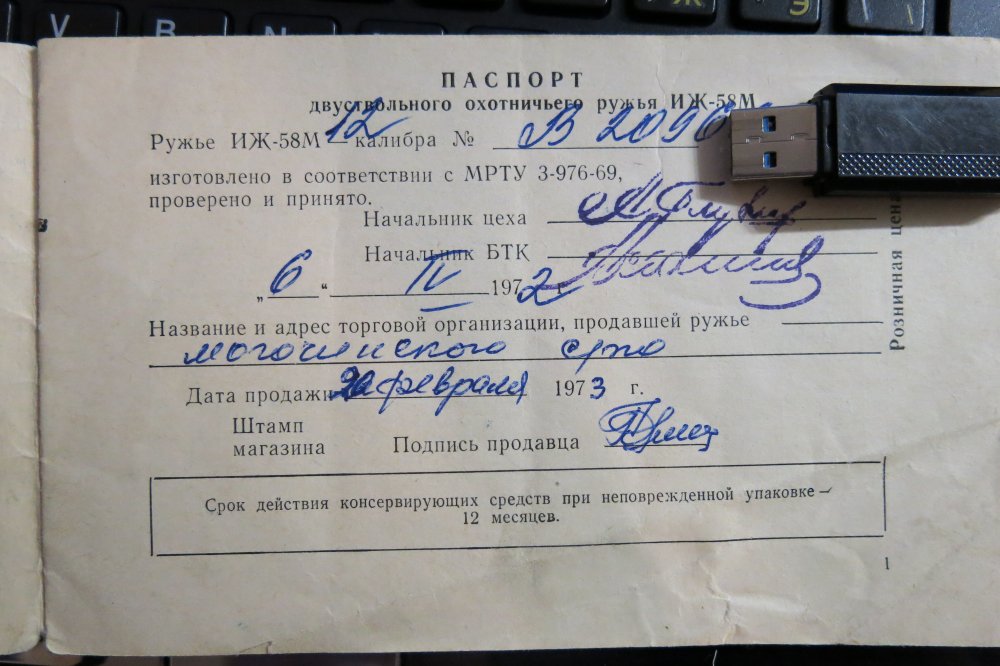 ПАСПОРТ
двуствольного охотничьего ружья ИЖ-58М
Ружье ИЖ-58М 12 калибра № В 2096
изготовлено в соответствии с МРТУ 3-976-69,
проверено и принято.
Начальник цеха
Начальник БТК
„6“ IV 1972 г.
Название и адрес торговой организации, продавшей ружье
могочинского
Дата продажи 20 февраля 1973 г.
Штамп
магазина
Подпись продавца
Срок действия консервирующих средств при неповрежденной упаковке—
12 месяцев.
1
Розничная цена